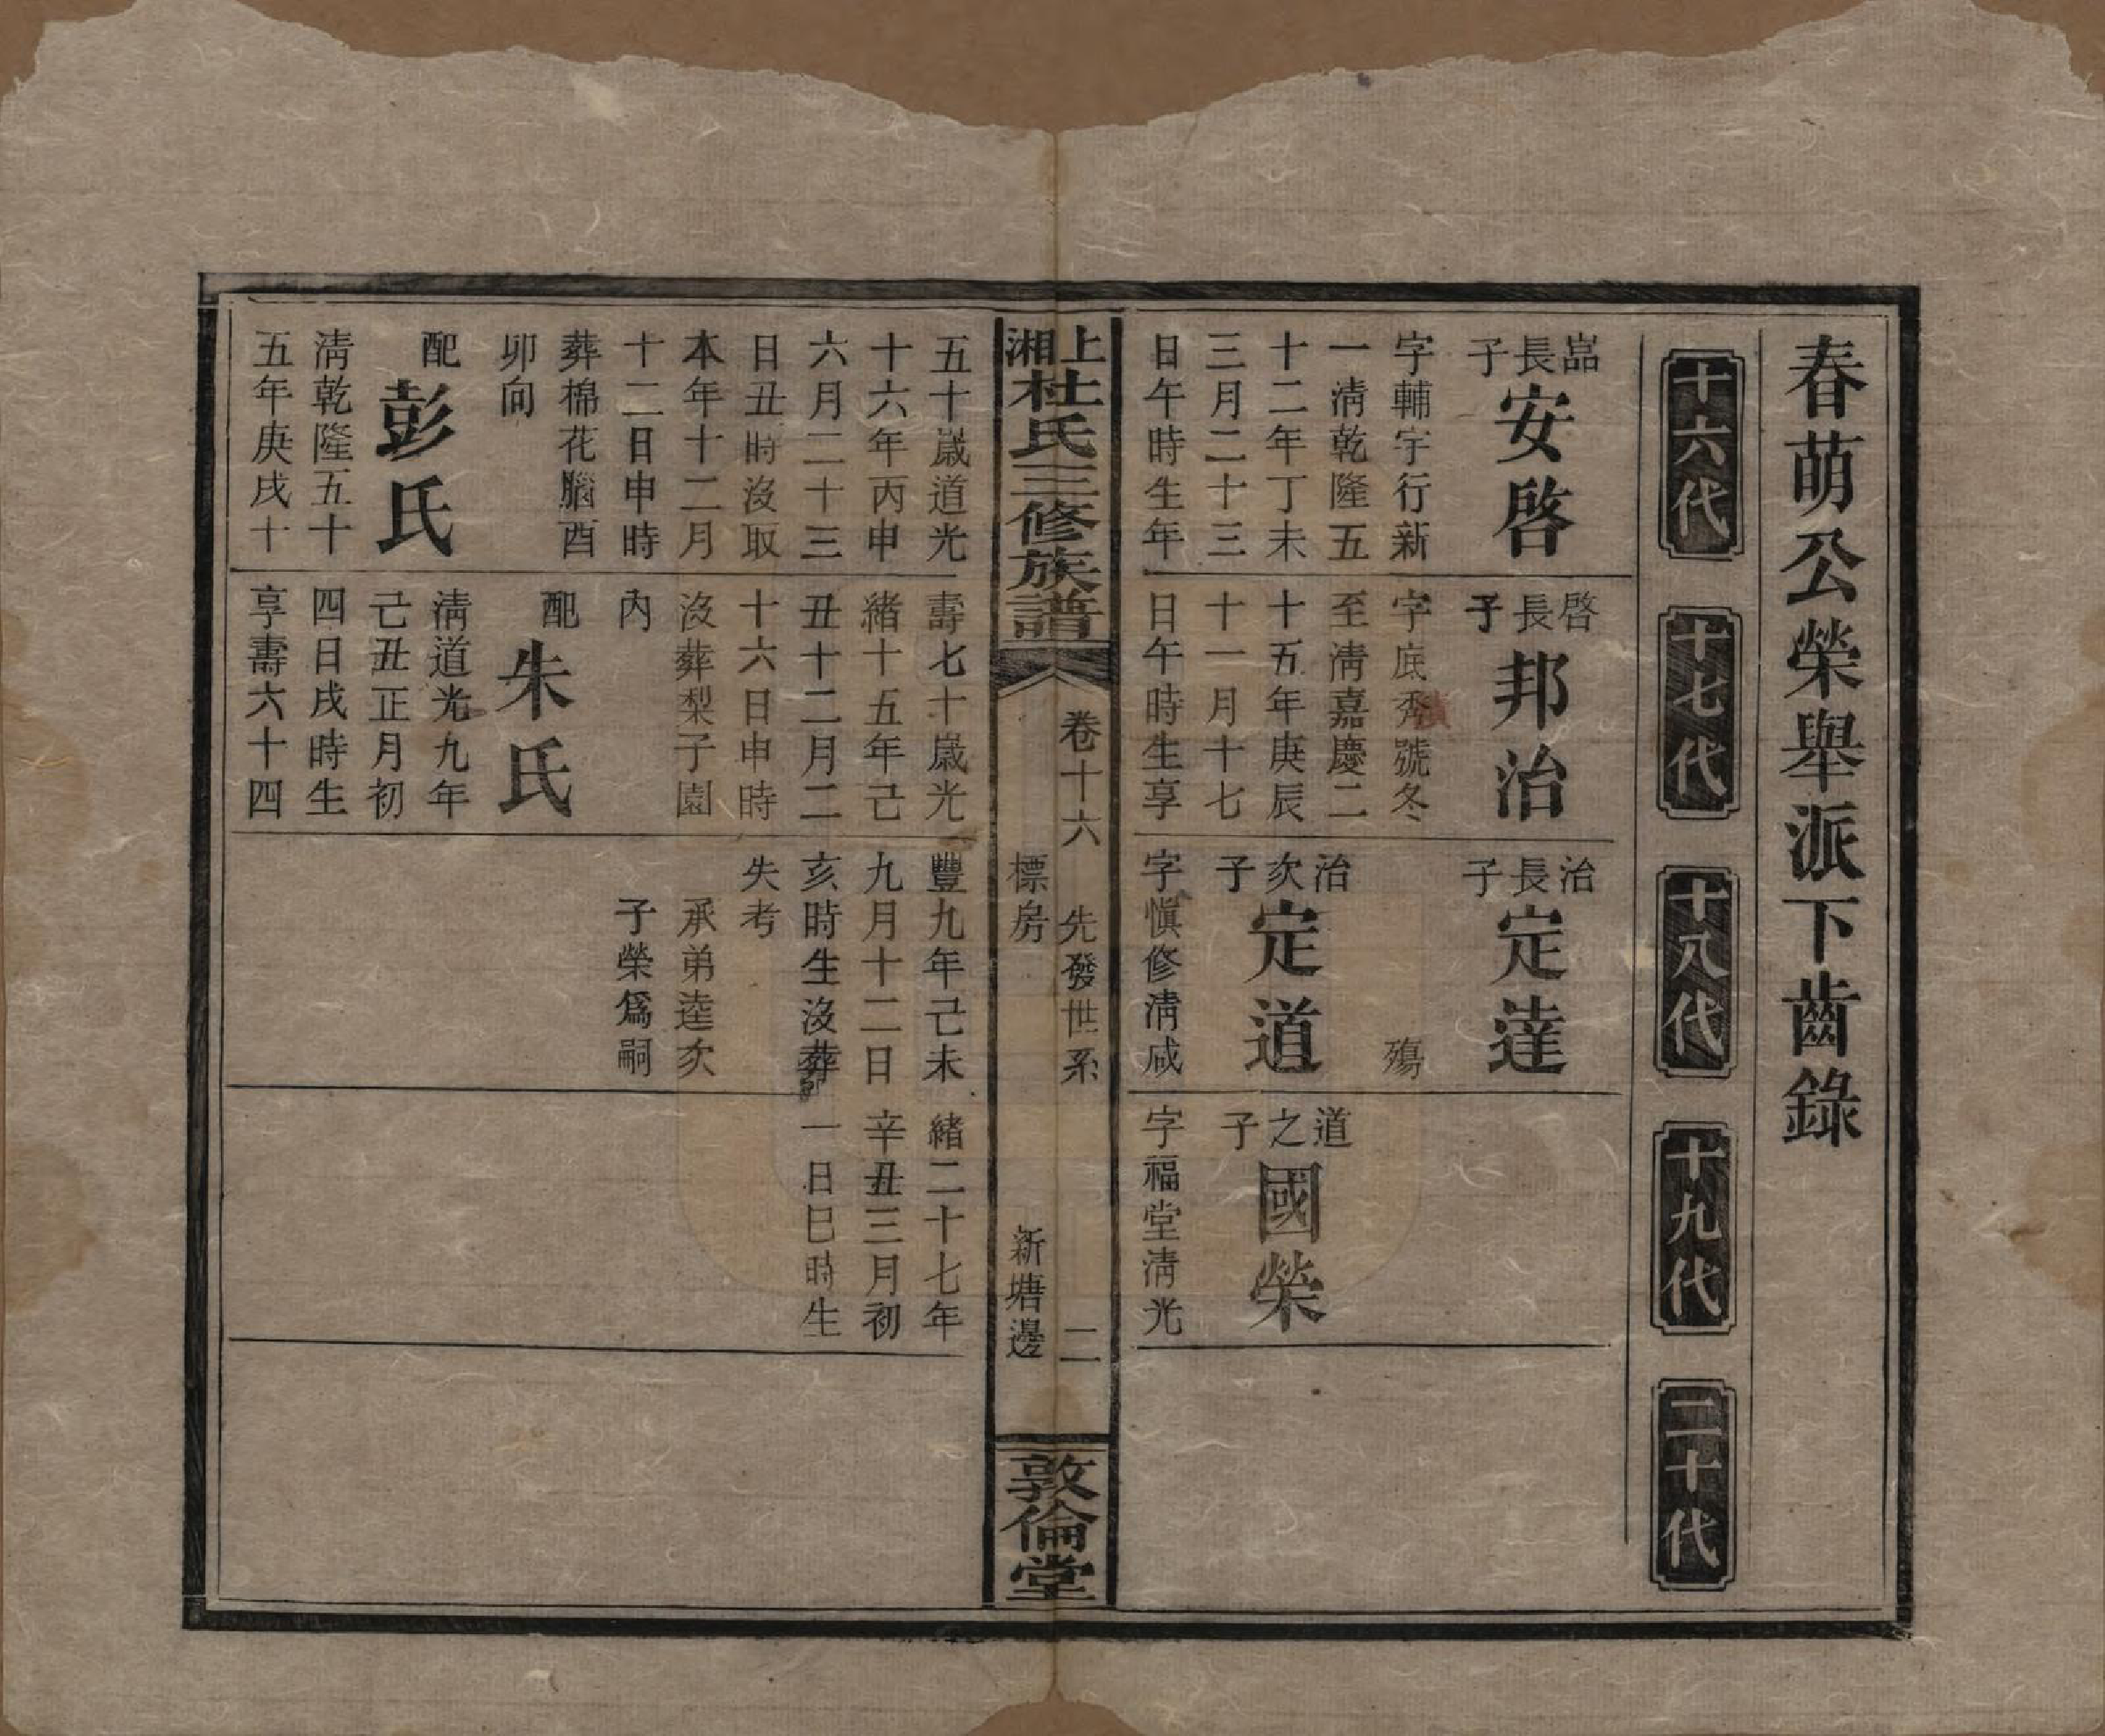 春萌公榮舉派下齒錄
十六代
十七代
十八代
十九代
二十代
嵓長子
安啓
字輔宇行新
一淸乾隆五
十二年丁未
三月二十三
日午時生年
啓長子
邦治
字底秀號冬
至淸嘉慶二
十五年庚辰
十一月十七
日午時生享
治長子
定達
殤
治次子
定道
字愼修淸咸
道之子
國榮
字福堂淸光
上湘
杜氏三修族譜
卷十六
先發世系
二
標房
新塘邊
敦倫堂
五十歲道光
十六年丙申
六月二十三
日丑時沒取
本年十二月
十二日申時
葬棉花腦酉
卯向
配
彭氏
淸乾隆五十
五年庚戌十
壽七十歲光
緒十五年己
丑十二月二
十六日申時
沒葬梨子園
內
配
朱氏
淸道光九年
己丑正月初
四日戌時生
享壽六十四
豐九年己未
九月十二日
亥時生沒葬
失考
承弟逵次
子榮爲嗣
緒二十七年
辛丑三月初
一日巳時生